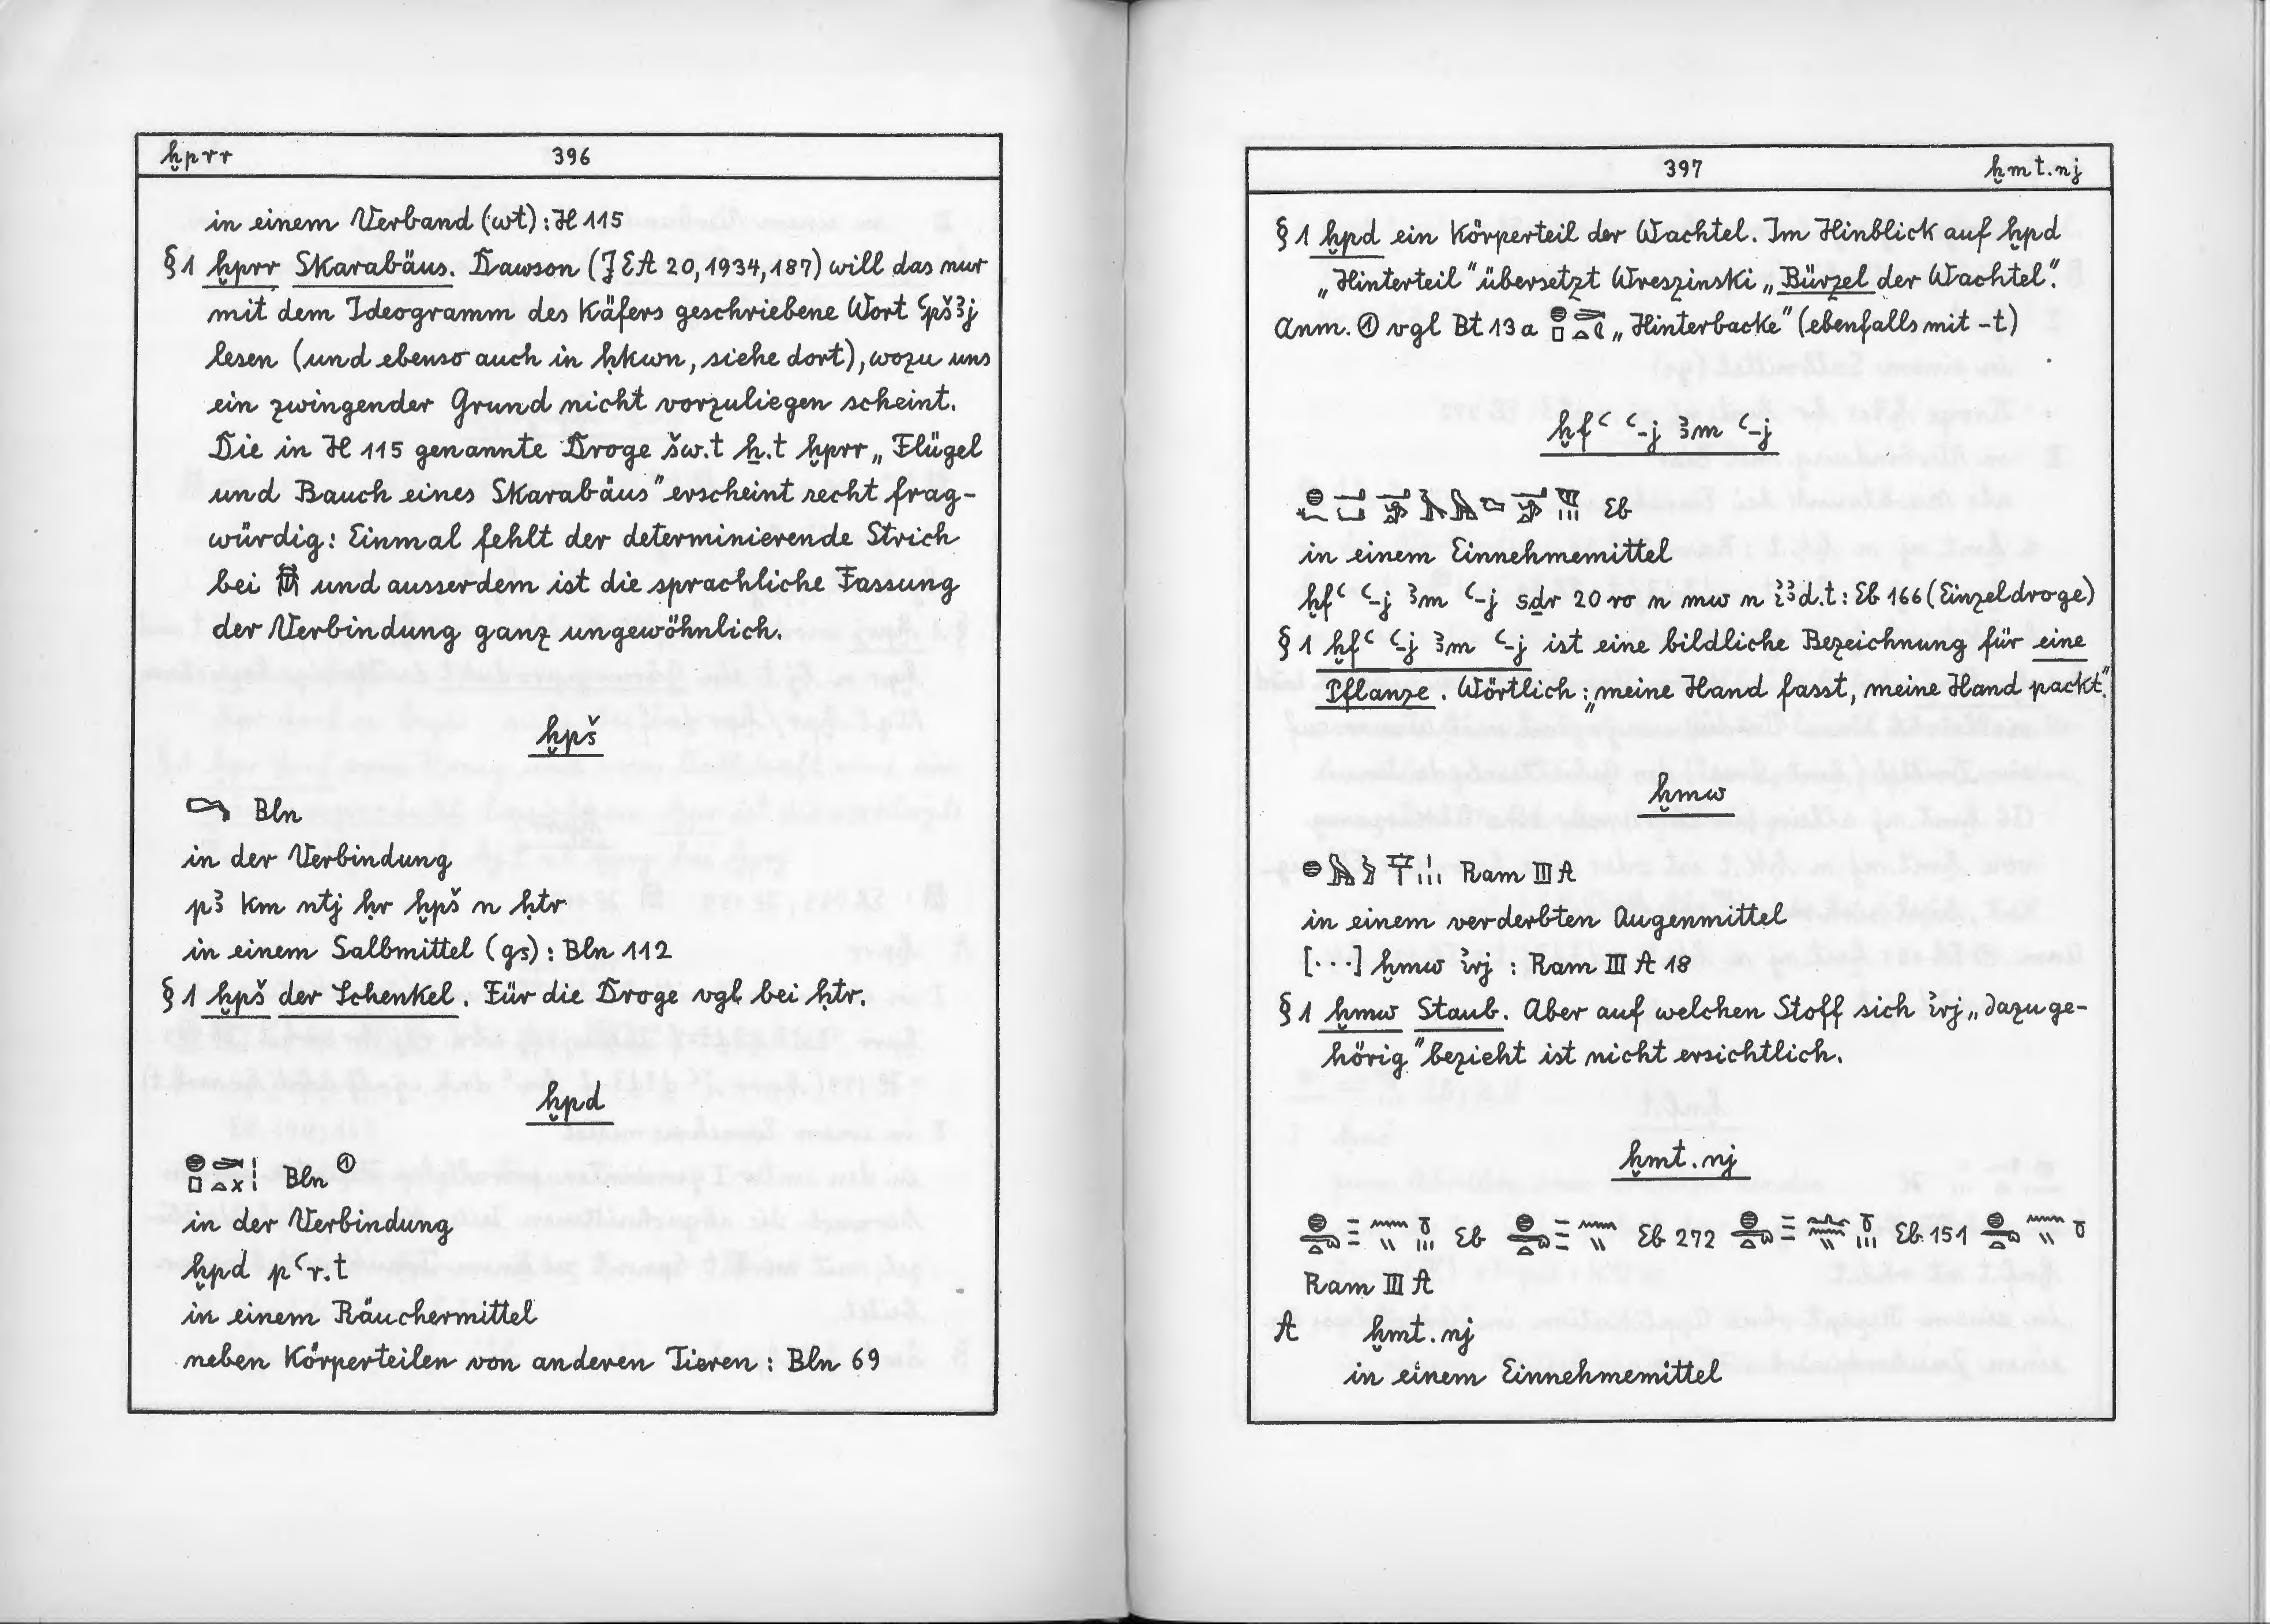 ḫprr 396
in einem Verband (wt) : H 115
§ 1 ḫprr Skarabäus. Dawson (JEA 20, 1934, 187) will das nur
mit dem Ideogramm des Käfers geschriebene Wort ꜥpšꜣj
lesen (und ebenso auch in ḥkwn, siehe dort), wozu uns
ein zwingender Grund nicht vorzuliegen scheint.
Die in H 115 genannte Droge šw.t ẖ.t ḫprr „Flügel
und Bauch eines Skarabäus" erscheint recht frag-
würdig: Einmal fehlt der determinierende Strich
bei 𓆣 und ausserdem ist die sprachliche Fassung
der Verbindung ganz ungewöhnlich.
ḫpš
𓄗 Bln
in der Verbindung
pꜣ km ntj ḥr ḫpš n ḥtr
in einem Salbmittel (gs) : Bln 112
§ 1 ḫpš der Schenkel. Für die Droge vgl. bei ḥtr.
ḫpd
Bln ①
in der Verbindung
ḫpd pꜥr.t
in einem Räuchermittel
neben Körperteilen von anderen Tieren : Bln 69
397 ḫmt.nj
§ 1 ḫpd ein Körperteil der Wachtel. Im Hinblick auf ḫpd
„Hinterteil" übersetzt Wreszinski „Bürzel der Wachtel".
Anm. ① vgl Bt 13a „Hinterbacke" (ebenfalls mit -t)
ḫfꜥ ꜥ-j ꜣm ꜥ-j
Eb
in einem Einnehmemittel
ḫfꜥ ꜥ-j ꜣm ꜥ-j sḏr 20 ro n mw n ꞽꜣd.t : Eb 166 (Einzeldroge)
§ 1 ḫfꜥ ꜥ-j ꜣm ꜥ-j ist eine bildliche Bezeichnung für eine
Pflanze. Wörtlich : „meine Hand fasst, meine Hand packt."
ḫmw
Ram III A
in einem verderbten Augenmittel
[...] ḫmw ꞽrj : Ram III A 18
§ 1 ḫmw Staub. Aber auf welchen Stoff sich ꞽrj „dazuge-
hörig" bezieht ist nicht ersichtlich.
ḫmt.nj
Eb Eb 272 Eb 151
Ram III A
A ḫmt.nj
in einem Einnehmemittel